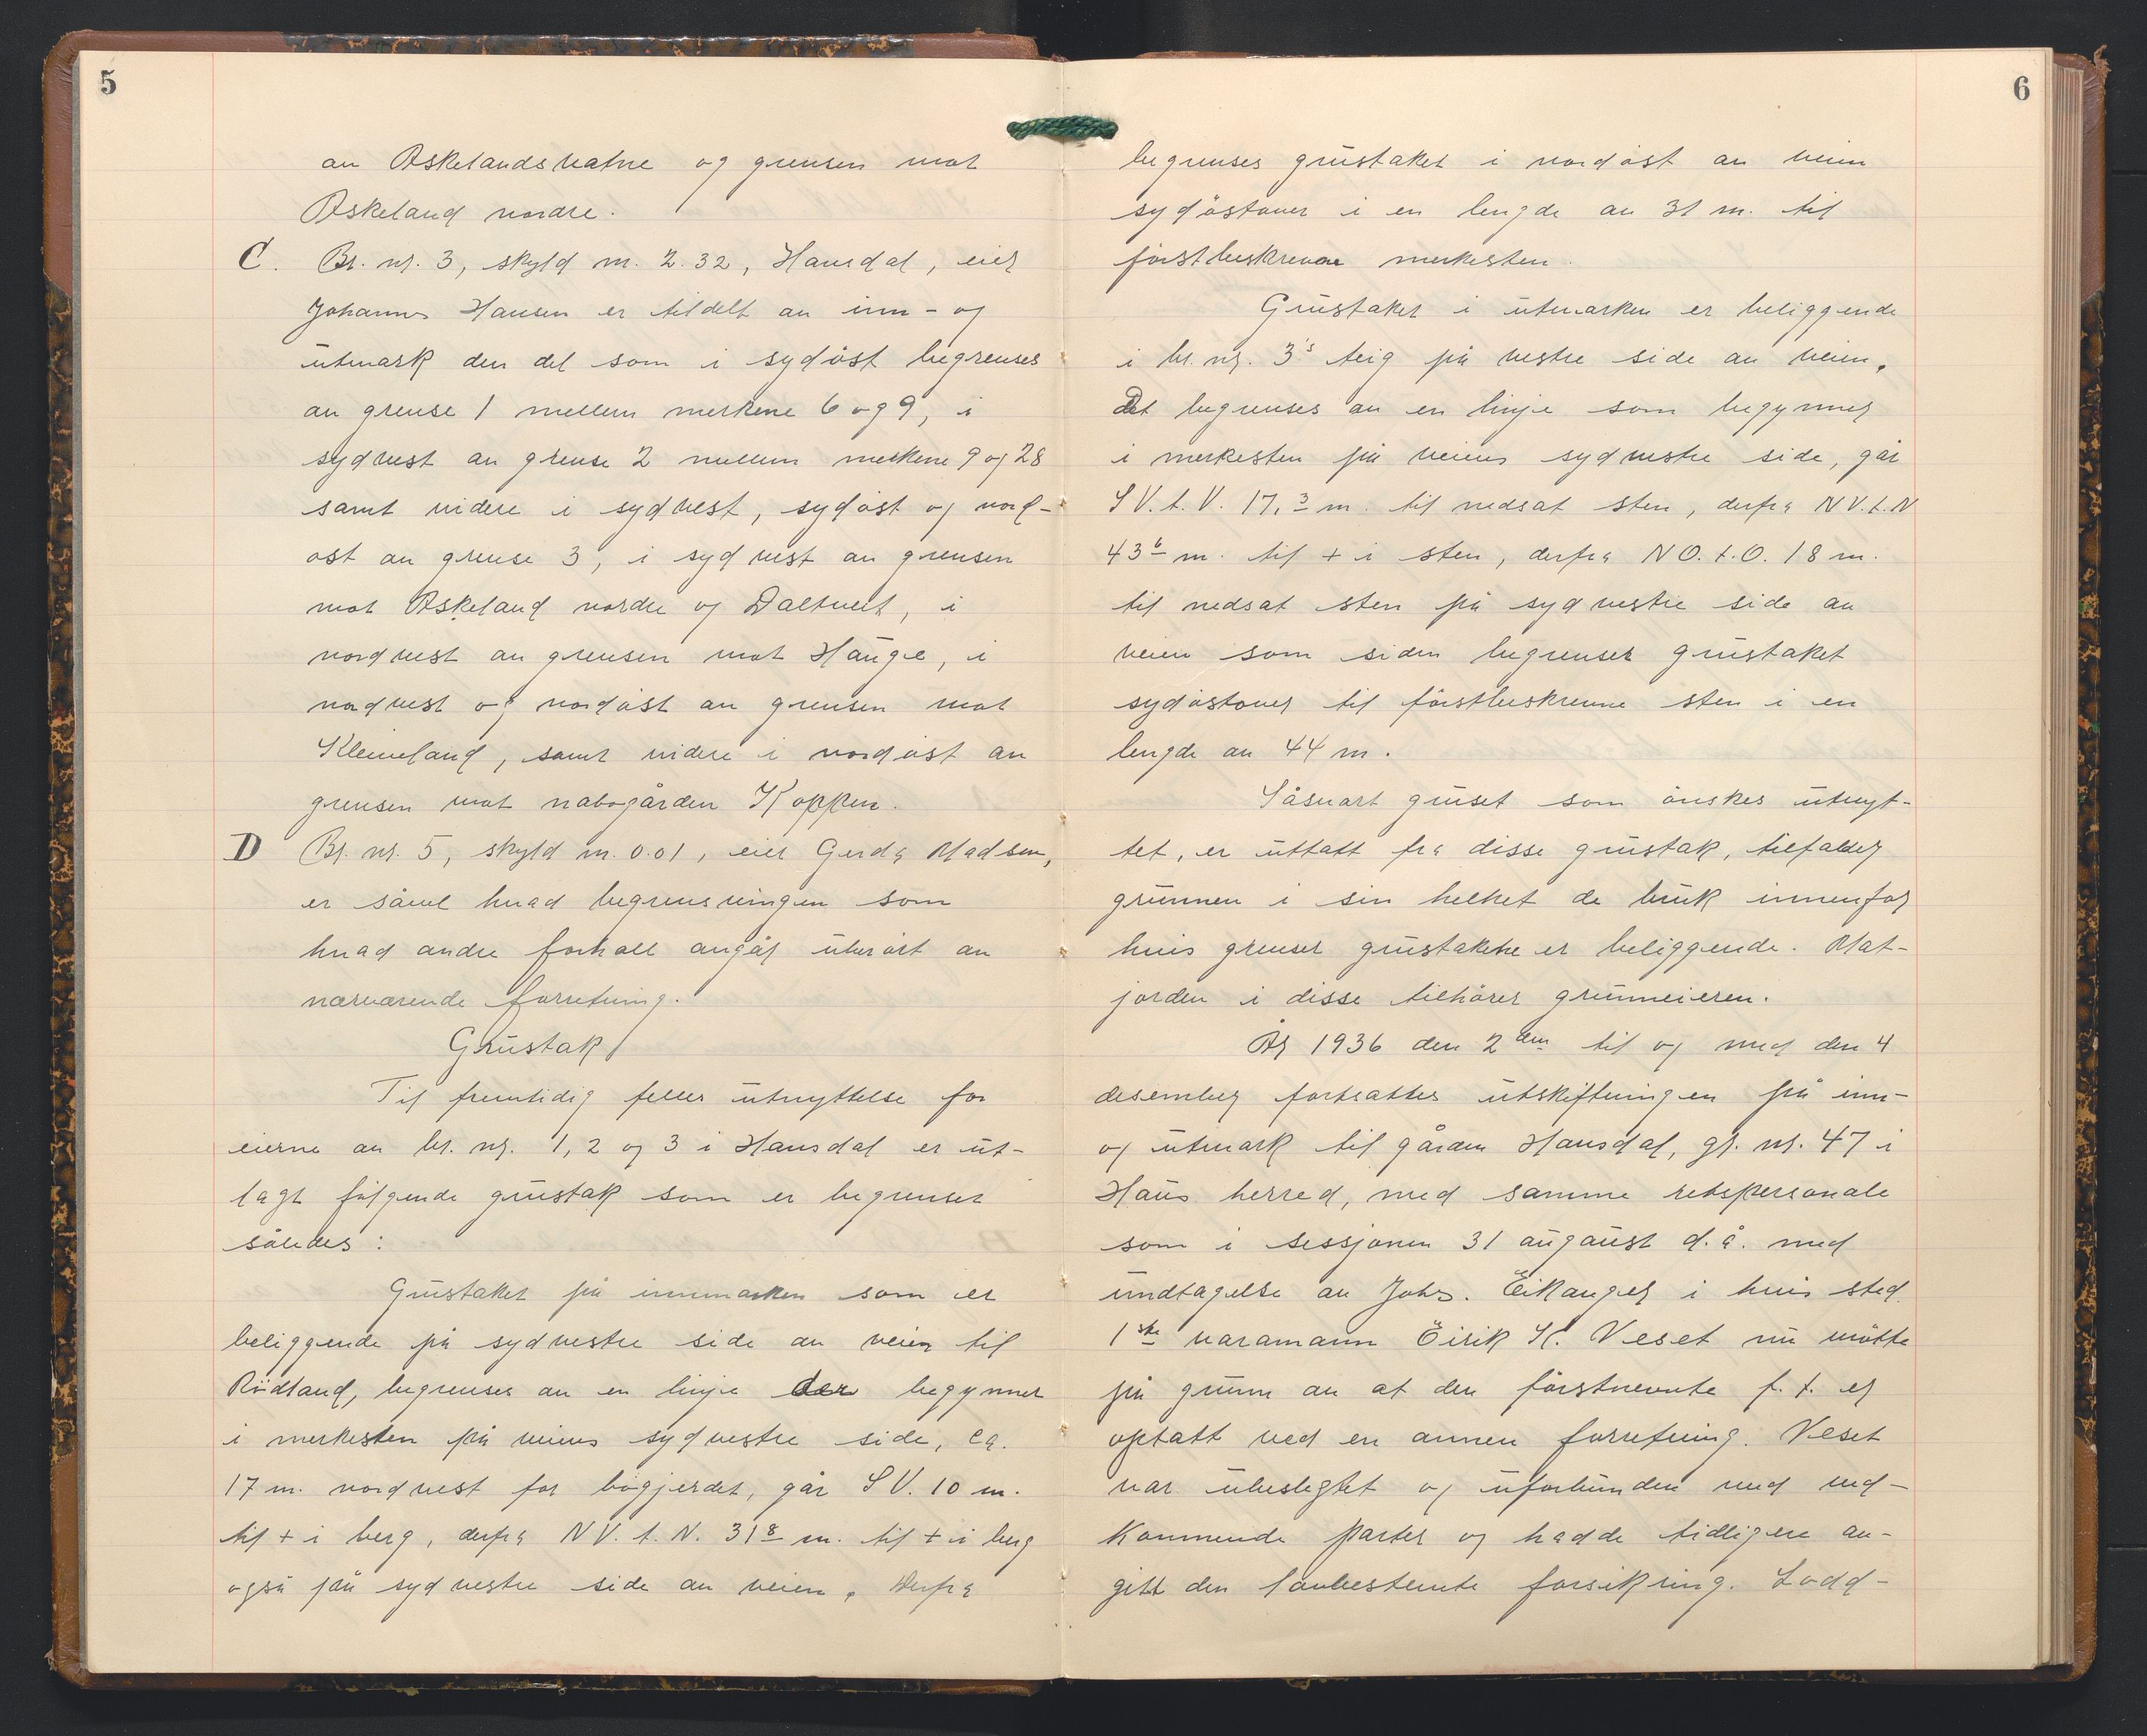 5
av Askelandsvatne og grensen mot
Askeland nordre.
C. Br. nr. 3, skyld m. 2.32, Hausdal, eier
Johannes Hansen er tildelt av inn- og
utmark den del som i sydöst begrenses
av grense 1 mellem merkene 6 og 9, i
sydvest av grense 2 mellem merkene 9 og 28
samt videre i sydvest, sydöst og nord-
ost av grense 3, i sydvest av grensen
mot Askeland nordre og Daltveit, i
nordvest av grensen mot Hauge, i
nordvest og nordöst av grensen mot
Kleiveland, samt videre i nordöst av
grensen mot nabogården Koppen.
D Br. nr. 5, skyld m. 0.01, eier Gerda Madsen,
er såvel hvad begrensningen som
hvad andre forhold angår uberört av
nærværende forretning.
Grustak
Til fremtidig felles utnyttelse for
eierne av br. nr. 1, 2 og 3 i Hausdal er ut-
lagt fölgende grustak som er begrenset
således:
Grustaket på innmarken som er
beliggende på sydvestre side av veien til
Rödland, begrenses av en linje der begynner
i merkesten på veiens sydvestre side, ca.
17 m. nordvest for bögjerdet, går SV. 10 m.
til + i berg, derfra NV. t. N. 31 8 m. til + i berg
også på sydvestre side av veien. Derfra
6
begrenses grustaket i nordöst av veien
sydöstover i en lengde av 31 m. til
förstbeskrevne merkesten.
Grustaket i utmarken er beliggende
i br. nr. 3's teig på vestre side av veien.
Det begrenses av en linje som begynner
i merkesten på veiens sydvestre side, går
SV. t. V. 17, 3 m. til nedsat sten, derfra NV. t. N
43 6 m. til + i sten, derfra NO. t. O. 18 m.
til nedsat sten på sydvestre side av
veien som siden begrenser grustaket
sydöstover til förstbeskrevne sten i en
lengde av 44 m.
Såsnart gruset som önskes utnyt-
tet, er uttatt fra disse grustak, tilfalder
grunnen i sin helhet de bruk innenfor
hvis grenser grustakene er beliggende. Mat-
jorden i disse tilhörer grunneieren.
År 1936 den 2den til og med den 4
desember fortsattes utskiftningen på inn-
og utmark til gården Hausdal, gr. nr. 47 i
Haus herred, med samme retspersonale
som i sessjonen 31 augaust d.å. med
undtagelse av Johs. Eikanger i hvis sted
1ste varamann Eirik K. Veset nu mötte
på grunn av at den förstnevnte f. t. er
optatt ved en annen forretning. Veset
var ubeslegtet og uforbunden med ved-
kommende parter og hadde tidligere av-
gitt den lovbestemte forsikring. Lodd-